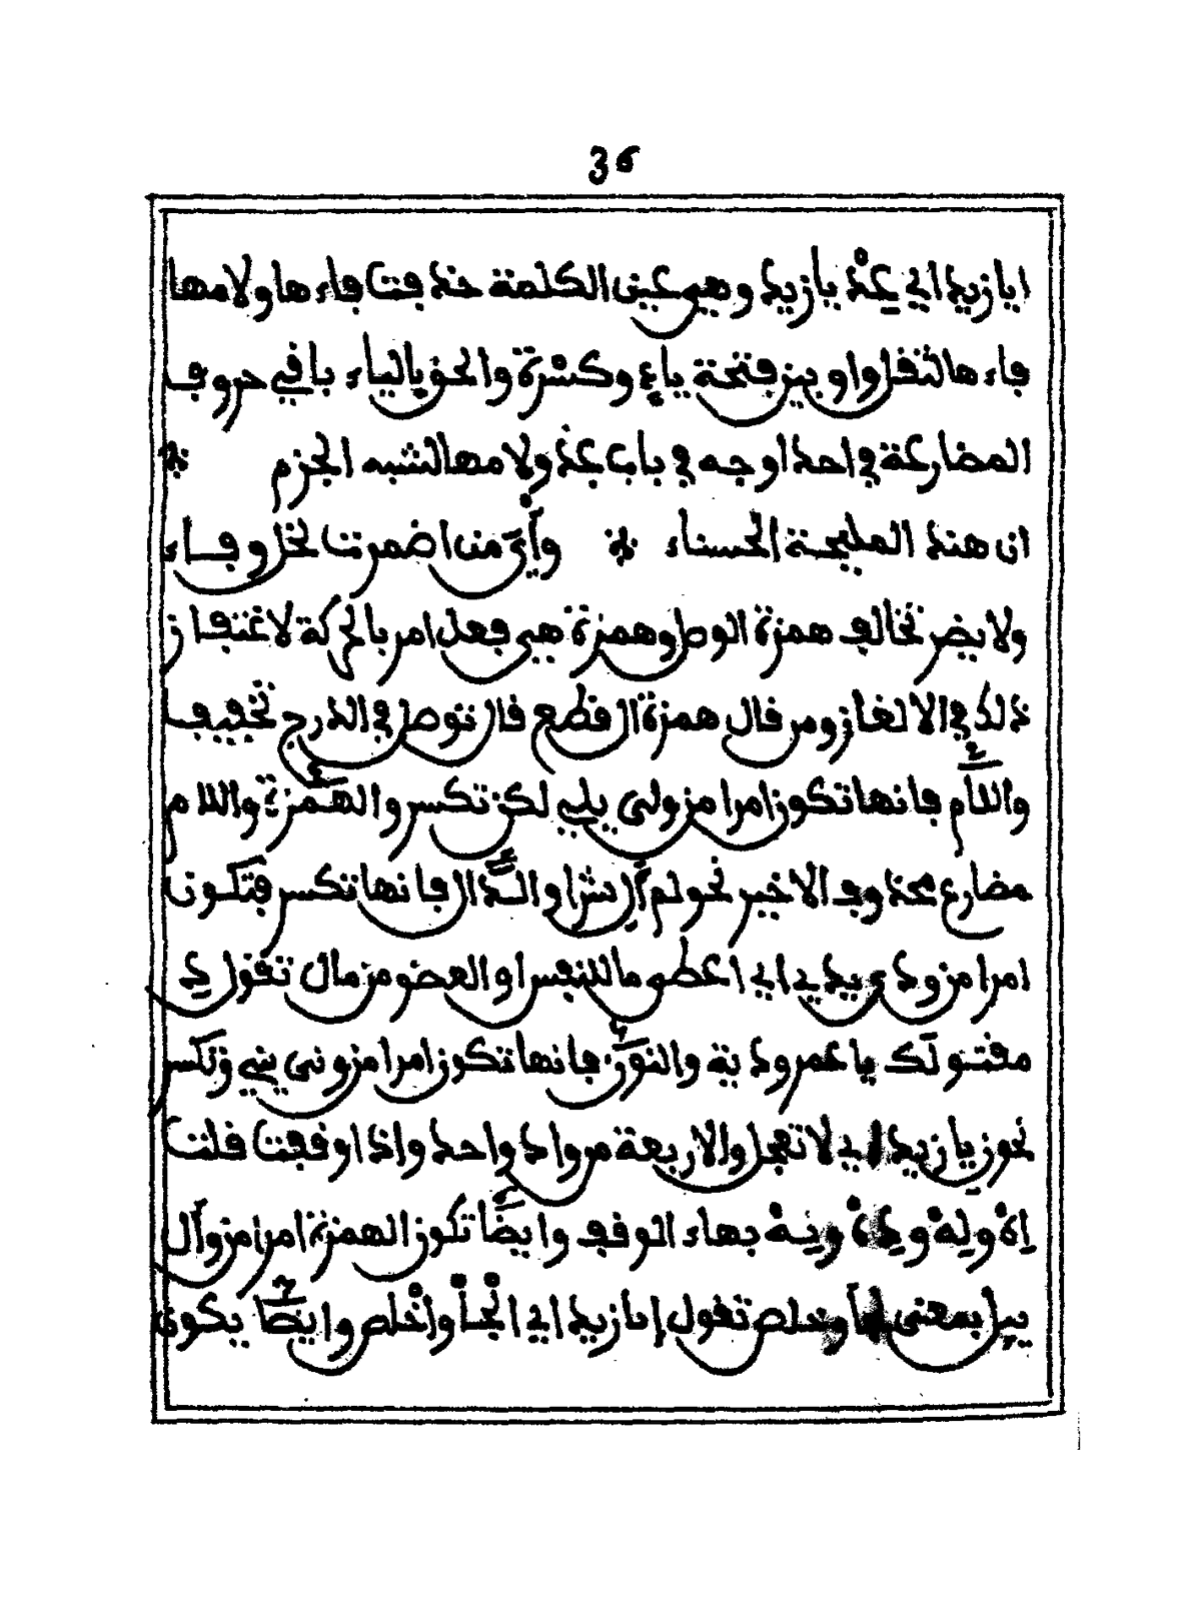 36
ايا زيد اي عِدْ يا زيد وهي عين الكلمة حذفت فاءها ولامها
فاءها لثقل واو بين فتحة ياء وكسرة والحق بالياء باقي حروف
المضارعة في احد اوجه في باب عد ولامها لشبه الجزم
ان هند المليحة الحسناء وأي من اضمرت لخل وفاء
ولا يضر تخالف همزة الوصل وهمزة هي فعل امر بالحركة لاغتفار
ذلك في الالغاز ومن قال همزة ال قطع قال توصل في الدرج تخفيف
واللام فانها تكون امرا من ولي يلي لكن تكسر والهمزة واللام
مضارع محذوف الاخير نحو لم أل شرا والدال فانها تكسر فتكون
امرا من ودى يدي اي اعطو ما للنفس او العضو من مال تقول دِ
مقتولك يا عمرو دية والنون فانها تكون امرا من ونى يني وتكسر
نحو ن يا زيد اي لا تعجل والاربعة من واد واحد واذا وقفت قلت
اِهْ ولِهْ ودِهْ ونِهْ بهاء الوقف وايضا تكون الهمزة امرا من وأل
يئل بمعنى لجأ وخلص تقول إ يا زيد اي الْجأْ واخْلص وايضا يكون